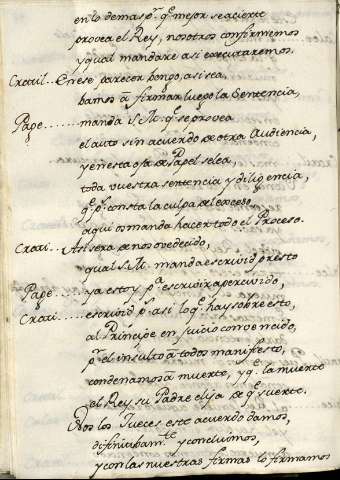 en lo demas p.ʳ q̃ mejor se acierte
provea el Rey, nosotros confirmemos
y qual mandare asi executaremos.
Cratil.. En ese parecer vengo, asi sea.
vamos à firmar luego la Sentencia,
Pape...... manda S. M. q̃ se provea
el auto sin acuerdo de otra Audiencia,
y en esta oja de Papel se lea,
toda vuestra sentencia y diligencia,
q̃ p.ʳ consta la culpa del exceso
aqui os manda hacer todo el Proceso.
Crati... Asi sera de nos ovedecido,
qual S. M. manda escrivid presto
Pape..... ya estoy p.ᵃ escrivir apercivido,
Crati..... escrivid p.ˢ asi lo q̃ hay sobre esto,
al Príncipe en Juicio convencido,
p.ʳ el insulto à todos manifiesto,
condenamos à muerte, y q̃ la muerte
el Rey su Padre elija de q̃ suerte.
Nos los Jueces este acuerdo damos,
difinitivam.ᵗᵉ y concluimos,
y con las nuestras firmas lo firmamos